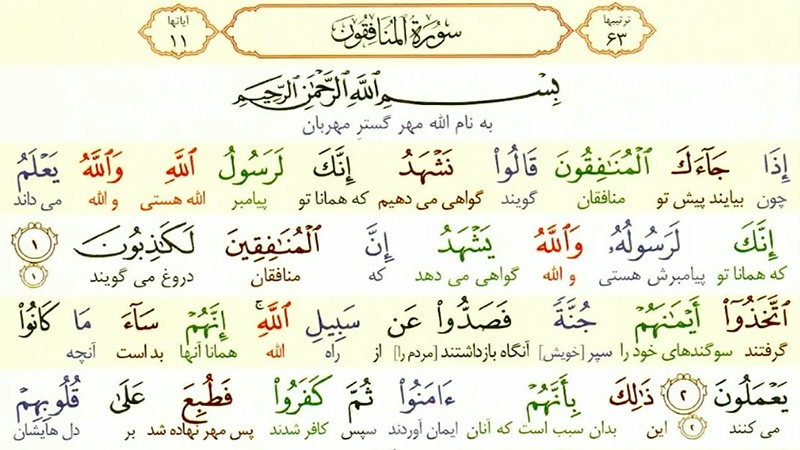 ترتیبها ۶۳ سورة المنافقون آیاتها ۱۱
بِسْمِ ٱللَّهِ ٱلرَّحْمَٰنِ ٱلرَّحِيمِ
به نام الله مهر گستر مهربان
إِذَا جَآءَكَ ٱلْمُنَٰفِقُونَ قَالُوا۟ نَشْهَدُ إِنَّكَ لَرَسُولُ ٱللَّهِ وَٱللَّهُ يَعْلَمُ
چون بیایند پیش تو منافقان گویند گواهی می دهیم که همانا تو پیامبر الله هستی و الله می داند
إِنَّكَ لَرَسُولُهُۥ وَٱللَّهُ يَشْهَدُ إِنَّ ٱلْمُنَٰفِقِينَ لَكَٰذِبُونَ ۱
که همانا تو پیامبرش هستی و الله گواهی می دهد که منافقان دروغ می گویند ۱
ٱتَّخَذُوٓا۟ أَيْمَٰنَهُمْ جُنَّةً فَصَدُّوا۟ عَن سَبِيلِ ٱللَّهِ ۚ إِنَّهُمْ سَآءَ مَا كَانُوا۟
گرفتند سوگندهای خود را سپر [خویش] آنگاه بازداشتند [مردم را] از راه الله همانا آنها بد است آنچه
يَعْمَلُونَ ۲ ذَٰلِكَ بِأَنَّهُمْ ءَامَنُوا۟ ثُمَّ كَفَرُوا۟ فَطُبِعَ عَلَىٰ قُلُوبِهِمْ
می کنند ۲ این بدان سبب است که آنان ایمان آوردند سپس کافر شدند پس مهر نهاده شد بر دل هایشان